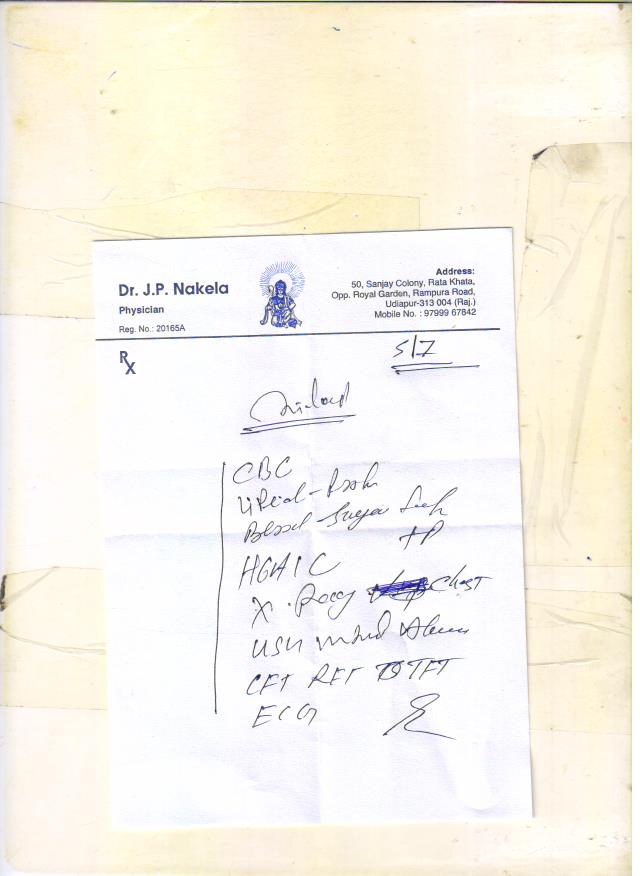 Dr. J.P. Nakela
Physician
Reg. No.: 20165A
Address:
50, Sanjay Colony, Rata Khata,
Opp. Royal Garden, Rampura Road,
Udiapur-313 004 (Raj.)
Mobile No. : 97999 67842
Rx
5/7
CBC
Lipid
Blood Sugar
HGA1C
X. Ray Chest
USG
LFT RFT TFT
ECG